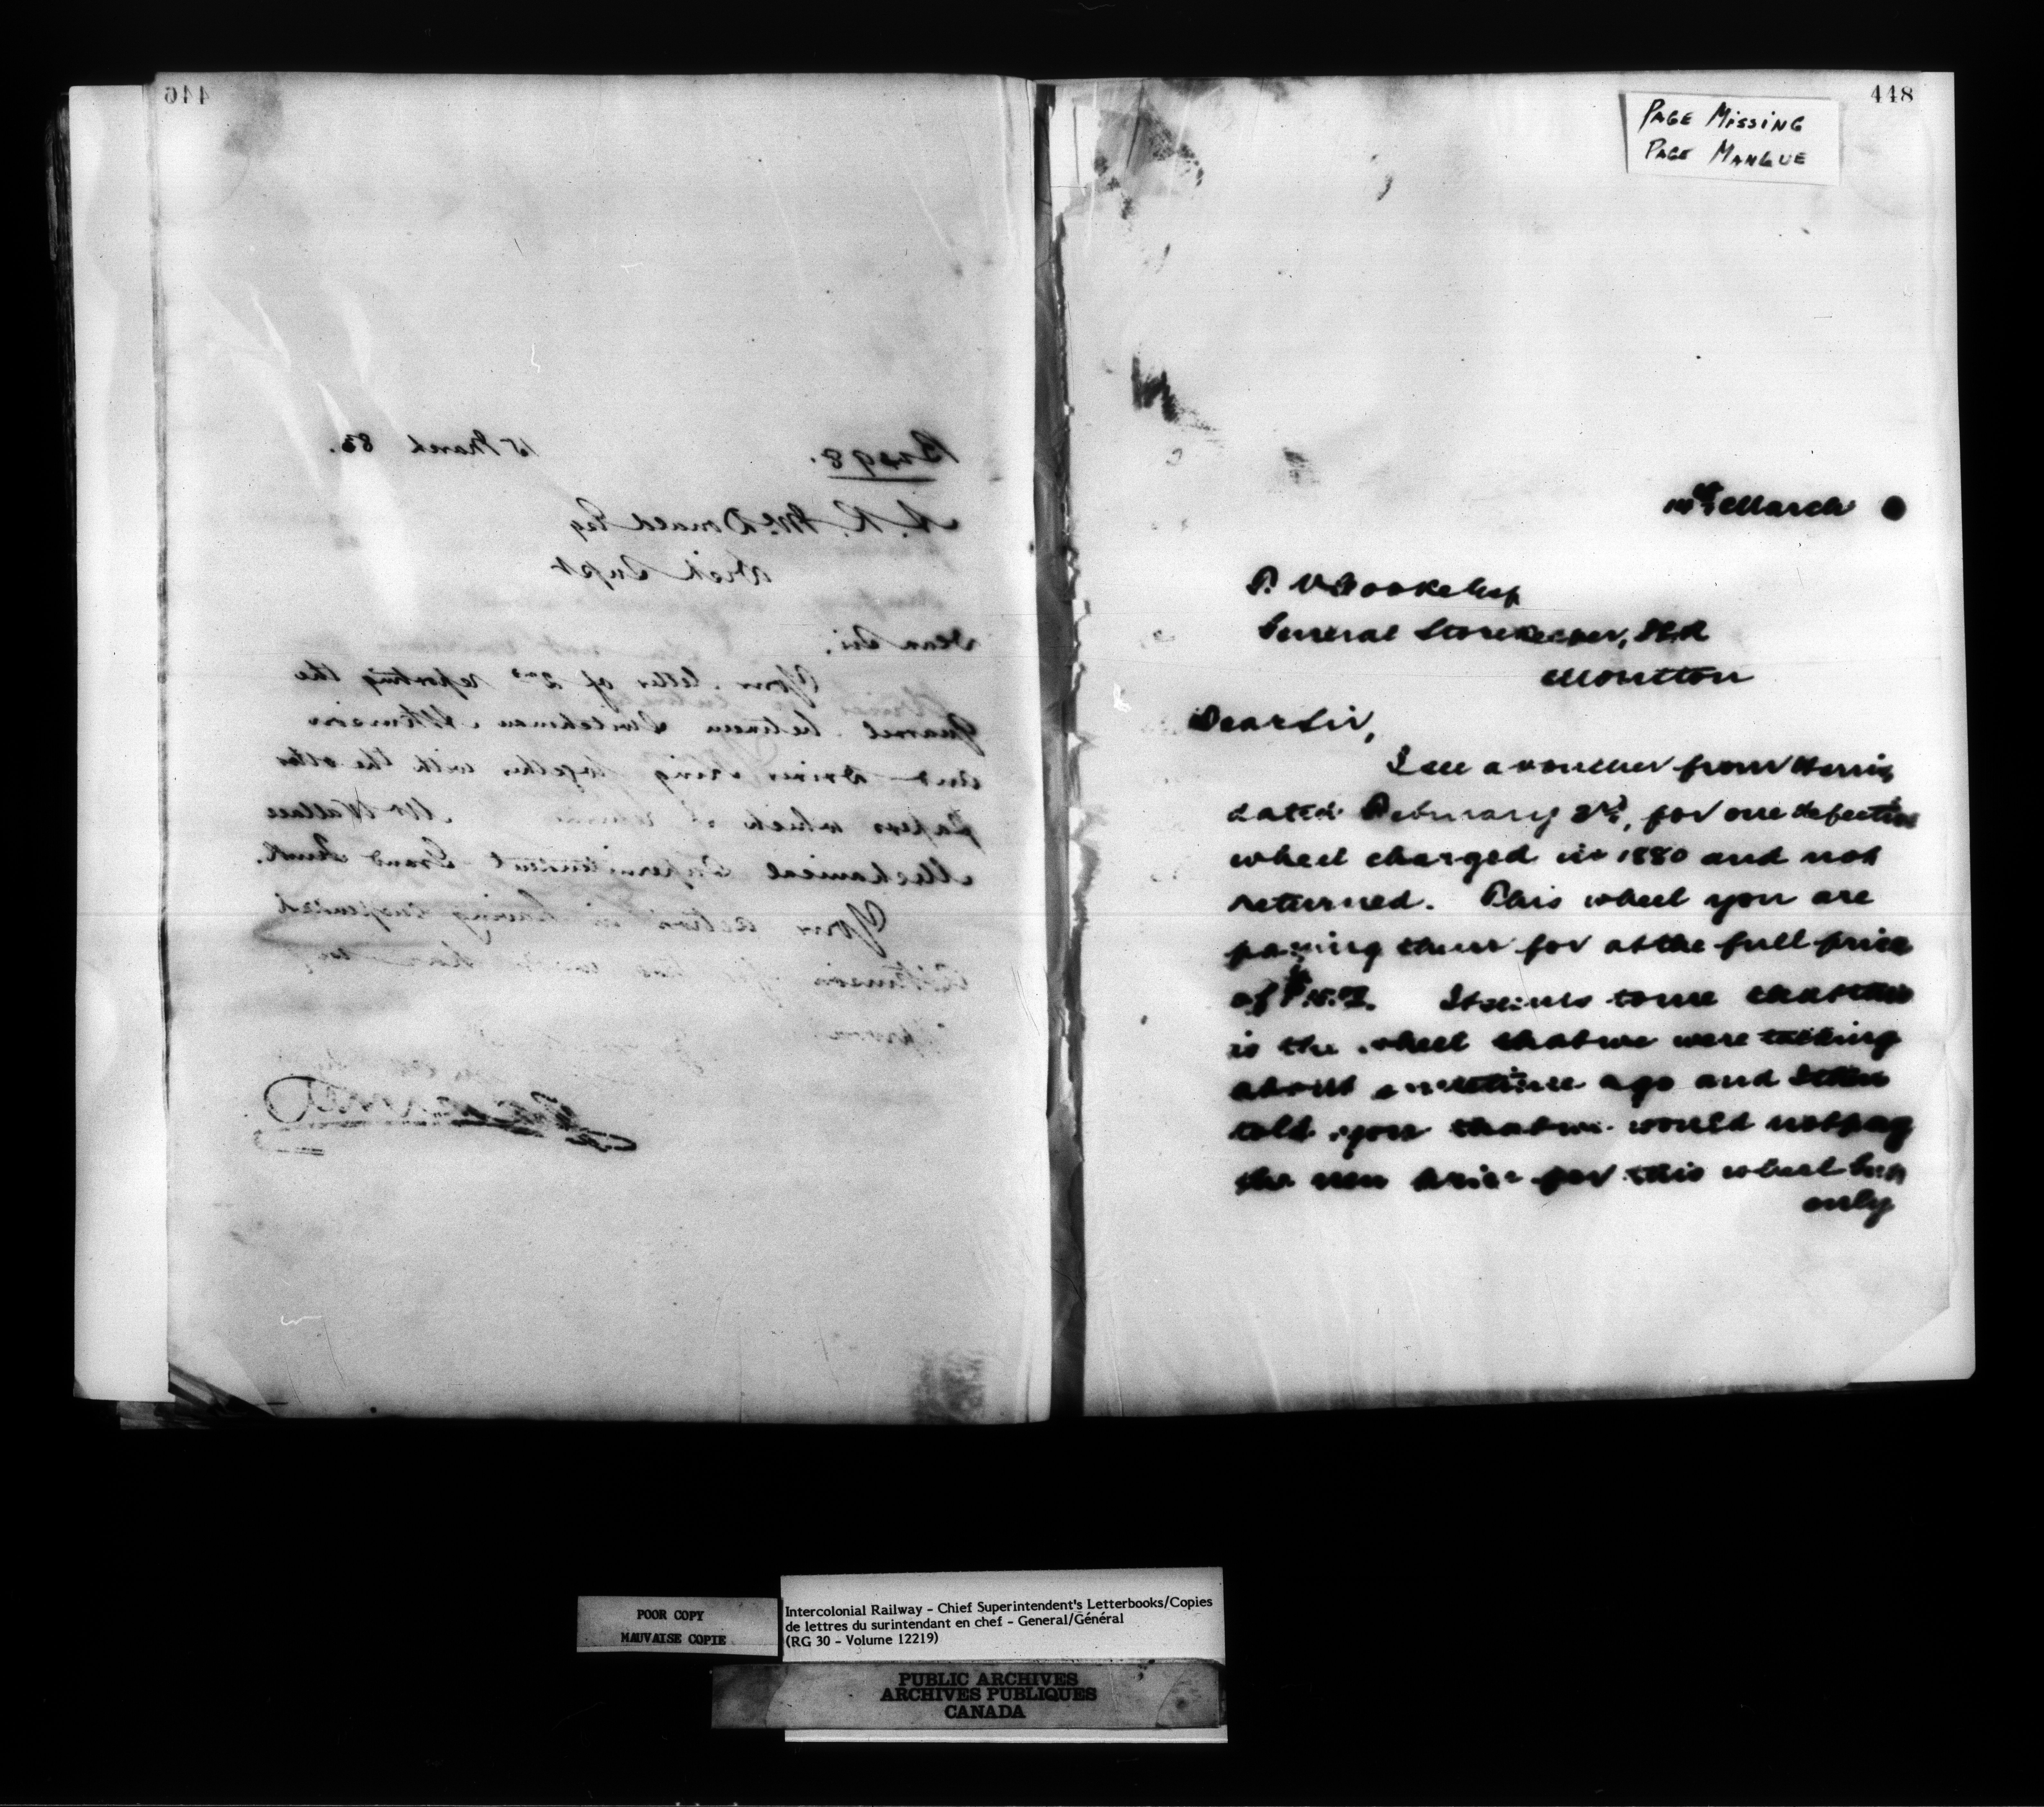 446
15 March 83.
A. R. McDonald Esq
Dist Supt
Dear Sir,
Your letter of 2nd reporting the
Quarrel between Switchman Atkinson
and Driver King together with the other
papers which I Mr Wallace
Mechanical Superintendent Grand Trunk.
Your action in having suspended
Atkinson
448
PAGE MISSING
PAGE MANQUE
March
General Storekeeper, I.C.R
Moncton
Dear Sir,
I see a voucher from Harris
dated February 2nd, for one defective
wheel charged in 1880 and not
returned. This wheel you are
paying them for at the full price
of It seems to me that this
is the wheel that we were talking
about sometime ago and I then
told you that we would not pay
the new price for this wheel but
only
POOR COPY
MAUVAISE COPIE
Intercolonial Railway - Chief Superintendent's Letterbooks/Copies
de lettres du surintendant en chef - General/Général
(RG 30 - Volume 12219)
PUBLIC ARCHIVES
ARCHIVES PUBLIQUES
CANADA